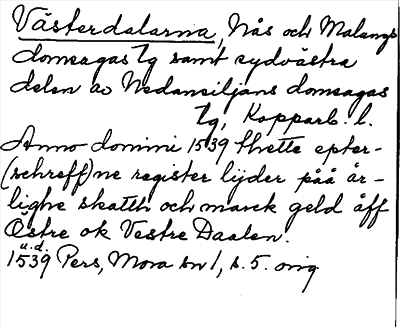 Västerdalarna, Nås och Malungs
domsagas lg samt sydvästra
delen av Nedansiljans domsagas
lg, Kopparb. l.
Anno domini 1539 thette epter-
(schreff)ne register lijder påå är-
lighe skatth och marck geld åff
Östre ok Vestre Daalen.
u.d.
1539 Pers, Mora sn 1, s. 5. orig